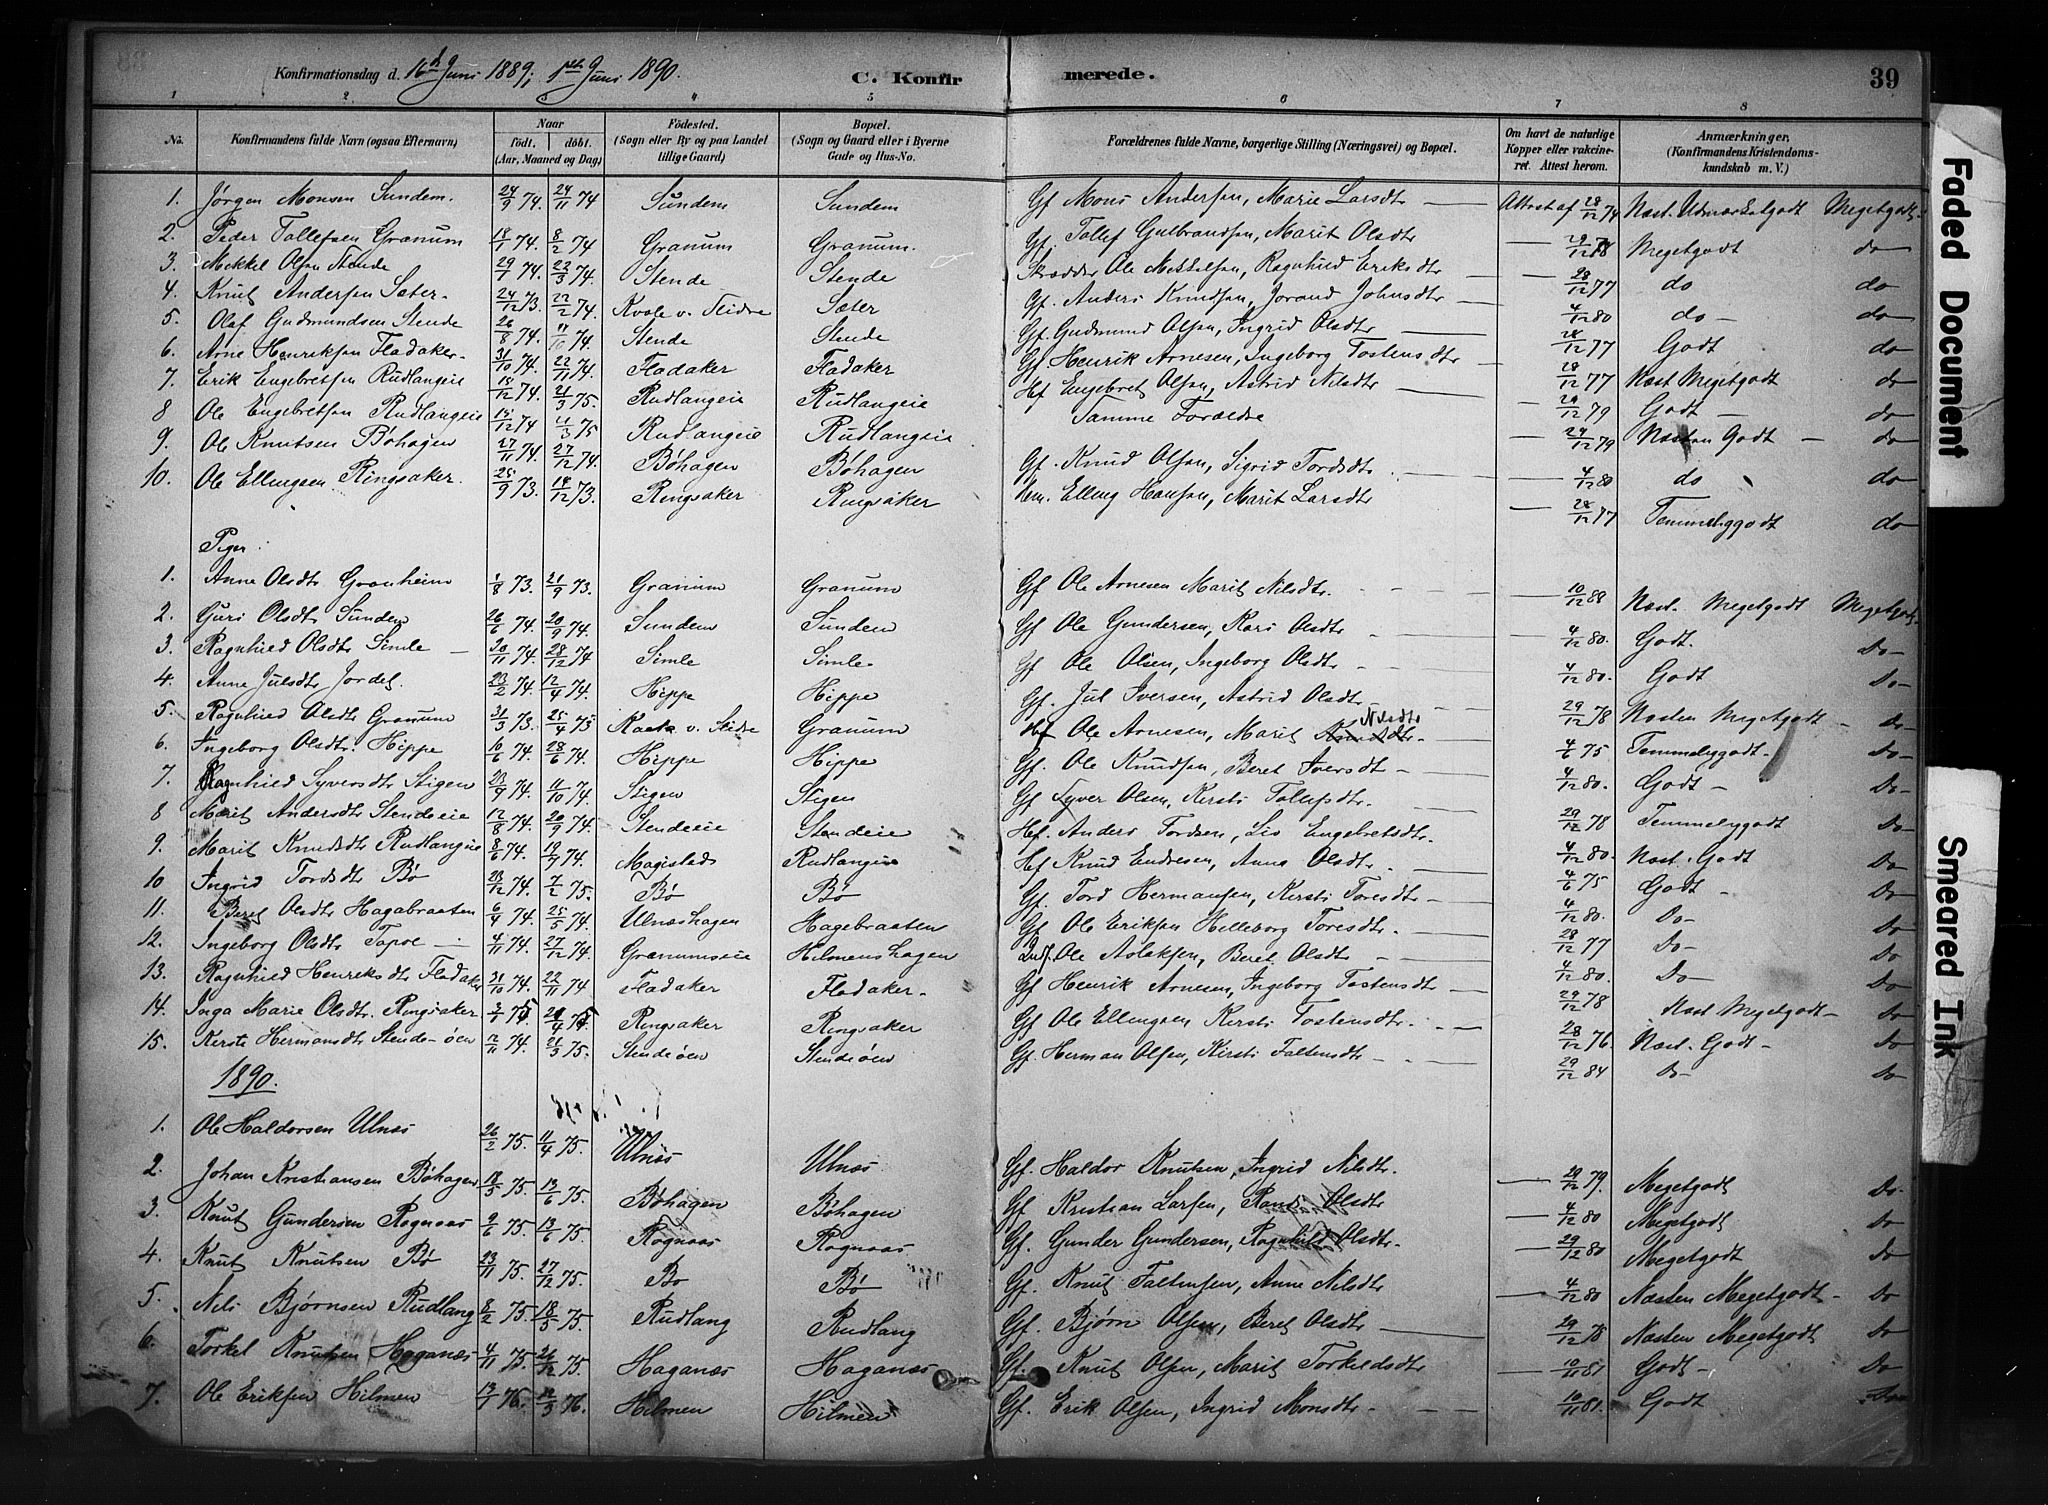 Konfirmationsdag d. 16de Juni 1889; 1ste Juni 1890. C. Konfirmerede. 39
1 2 3 4 5 6 7 8
No. Konfirmandens fulde Navn (ogsaa Efternavn) Naar født. døbt. (Aar, Maaned og Dag) Fødested. (Sogn eller By og paa Landet tillige Gaard) Bopæl. (Sogn og Gaard eller i Byerne Gade og Hus-No. Forældrenes fulde Navne, borgerlige Stilling (Næringsvei) og Bopæl. Om havt de naturlige Kopper eller vakcineret. Attest herom. Anmærkninger. (Konfirmandens Kristendomskundskab m. V.)
1. Jørgen Monsen Sundem. 24/9 74. 24/11 74 Sundem Sundem Gf Mons Andersen, Marie Larsdtr — Attest af 28/12 74 Næst. Udmærketgodt Megetgodt
2. Peder Tollefsen Granum 18/1 74. 8/2 74 Granum Granum. Gf. Tollef Gulbrandsen, Marit Olsdtr — 29/12 78 Megetgodt do
3. Mikkel Olsen Stende 29/1 74. 22/3 74. Stende Stende Skrædder Ole Mikkelsen, Ragnhild Eriksdtr — 28/12 77 do do
4. Knut Andersen Sæter. 24/12 73. 22/2 74. Kvale v. Slidre Sæter Gf. Anders Knudsen, Jorand Johnsdtr — 4/12 80 do do
5. Olaf Gudmundsen Stende 26/8 74. 11/10 74. Stende Stende Gf. Gudmund Olsen, Ingrid Olsdtr — 28/12 77 Godt do
6. Arne Henriksen Fladaker. 31/10 74. 22/11 74. Fladaker Fladaker Gf Henrik Arnesen, Ingeborg Tostensdtr — 28/12 77 Næst Megetgodt do
7. Erik Engebretsen Rudlangeie 15/12 74. 21/3 75. Rudlangeie Rudlangeie Hf Engebret Olsen, Astrid Nilsdtr — 29/12 79 Godt — do
8 Ole Engebretsen Rudlangeie 15/12 74 Rudlangeie Rudlangeie Samme Forældre — 29/12 79 Næsten Godt — do
9. Ole Knutsen Bøhagen 27/11 74. 27/12 74. Bøhagen Bøhagen Gf. Knud Olsen, Sigrid Tordsdtr — 4/12 80 do do
10. Ole Ellingsen Ringsaker. 25/9 73. 14/12 73. Ringsaker Ringsaker Elling Hansen, Marit Larsdtr — 28/12 77 Temmeliggodt do
Piger.
1. Anne Olsdtr Granheim 1/8 73. 21/9 73. Granum Granum Gf Ole Arnesen Marit Nilsdtr. — 10/12 88 Næst. Megetgodt Megetgodt
2. Guri Olsdtr Sundem 26/6 74. 20/9 74. Sundem Sundem Gf Ole Gundersen, Kari Olsdtr — 4/12 80. Godt. Do
3. Ragnhild Olsdtr Simle — 20/11 74. 28/12 74 Simle Simle Gf Ole Olsen, Ingeborg Olsdtr — 4/12 80. Godt Do
4. Anne Julsdtr Jordet. 23/2 74. 12/4 74. Hippe Hippe Gf. Jul Iversen, Astrid Olsdtr — 29/12 78 Næsten Megetgodt — Do
5. Ragnhild Olsdtr Granum 31/3 73. 25/4 73 v. Slidre Granum Hf Ole Arnesen, Marit Nilsdtr — 4/6 75 Temmeliggodt — Do
6. Ingeborg Olsdtr. Hippe 10/6 74. 28/6 74. Hippe Hippe Gf. Ole Knudsen, Beret Iversdtr — 4/12 80. Godt — Do
7. Ragnhild Syversdtr Stigen 20/9 74. 11/10 74. Stigen Stigen Gf Syver Olsen, Kersti Tollefsdtr. — 29/12 78 Temmeliggodt Do
8 Marit Andersdtr Stendeeie 12/8 74. 20/9 74. Stendeeie Stendeeie Hf. Anders Tordsen, Liv Engebretsdtr — 4/12 80. Næst. Godt Do
9. Marit Knudsdtr Rudlangeie 8/6 74. 19/7 74. Magistads Rudlangeie Hf Knud Endresen, Anna Olsdtr — 4/6 75 Godt — Do
10 Ingrid Tordsdtr Bø 23/12 74. 7/2 75. Bø Bø Gf. Tord Hermansen, Kersti Toresdtr — 4/12 80. Do — Do
11. Beret Olsdtr Hagabraaten 6/4 74. 25/5 74. Ulnæshagen Hagebraaten Gf Ole Eriksen Helleborg Toresdtr — 28/12 77 Do — Do
12. Ingeborg Olsdtr Tapoe — 4/11 74. 27/12 74. Granumseie Hilmenshagen Ole Aslaksen, Beret Olsdtr — 4/12 80. Do — Do
13. Ragnhild Henriksdtr Fladaker 31/10 74. 22/11 74 Fladaker Fladaker. Gf Henrik Arnesen, Ingeborg Tostensdtr — 29/12 78 Næst Megetgodt — Do
14. Inga Marie Olsdtr. Ringsaker 3/1 75 4 75 Ringsaker Ringsaker Gf Ole Ellingsen Kersti Tostensdtr. — 28/12 76 Næst. Godt — Do
15. Kersti Hermansdtr Stende-øen 12/11 74. 21/3 75. Stendeøen Stendeøen Gf. Herman Olsen, Kirsti Faltensdtr — 29/12 84 Do — Do
1890.
1. Ole Haldorsen Ulnæs 26/2 75. 11/4 75. Ulnæs Ulnæs Gf. Haldor Knutsen, Ingrid Nilsdtr. — 29/12 79. Megetgodt Do
2. Johan Kristiansen Bøhagen 18/5 75. 13/6 75. Bøhagen Bøhagen Gf. Kristian Larsen, Randi Olsdtr — 4/12 80 Megetgodt Do
3. Knut Gundersen Rognaas 9/6 75. 13/6 75. Rognaas Rognaas Gf. Gunder Gundersen, Ragnhild Olsdtr. — 29/12 80 Megetgodt Do
4. Knut Knutsen Bø 23/11 75. 27/12 75. Bø Bø Gf. Knut Faltinsen, Anne Nilsdtr — 4/12 80 Næsten Megetgodt — Do
5. Nils Bjørnsen Rudlang 8/2 75. 18/5 75. Rudlang Rudlang Gf. Bjørn Olsen, Beret Olsdtr — 29/12 78 Næsten Megetgodt Do
6. Torkel Knutsen Haganæs 4/11 75. 26/12 75. Haganæs Haganæs Gf. Knut Olsen, Marit Torkeldsdtr — 10/11 81 Godt — Do
7. Ole Eriksen Hilmen 13/1 76. 12/3 76. Hilmen Hilmen Gf. Erik Olsen, Ingrid Monsdtr — 10/11 81. Godt Do
Faded Document
Smeared Ink